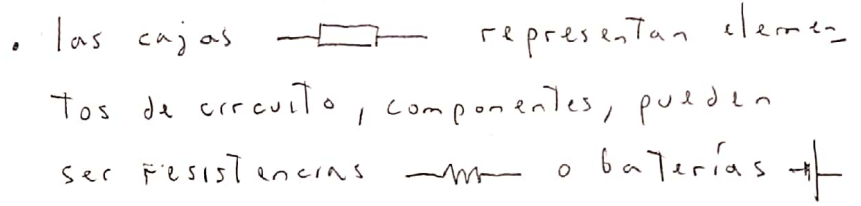 . las cajas representan elemen_
tos de circuito, componentes, pueden
ser resistencias o baterías